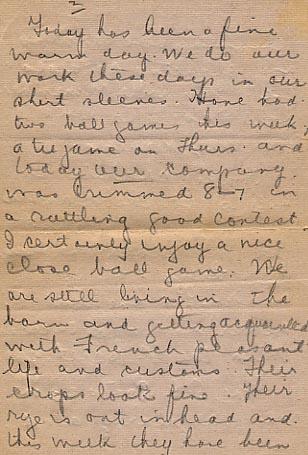 2
Today has been a fine
warm day. We do our
work these days in our
shirt sleeves. Have had
two ball games this week.
a tie game on Thurs. and
today our company
was trimmed 8-7 in
a rattling good contest
I certainly enjoy a nice
close ball game. We
are still living in the
barn and getting acquainted
with French peasant
life and customs. Their
crops look fine. Their
rye is out in head and
this week they have been